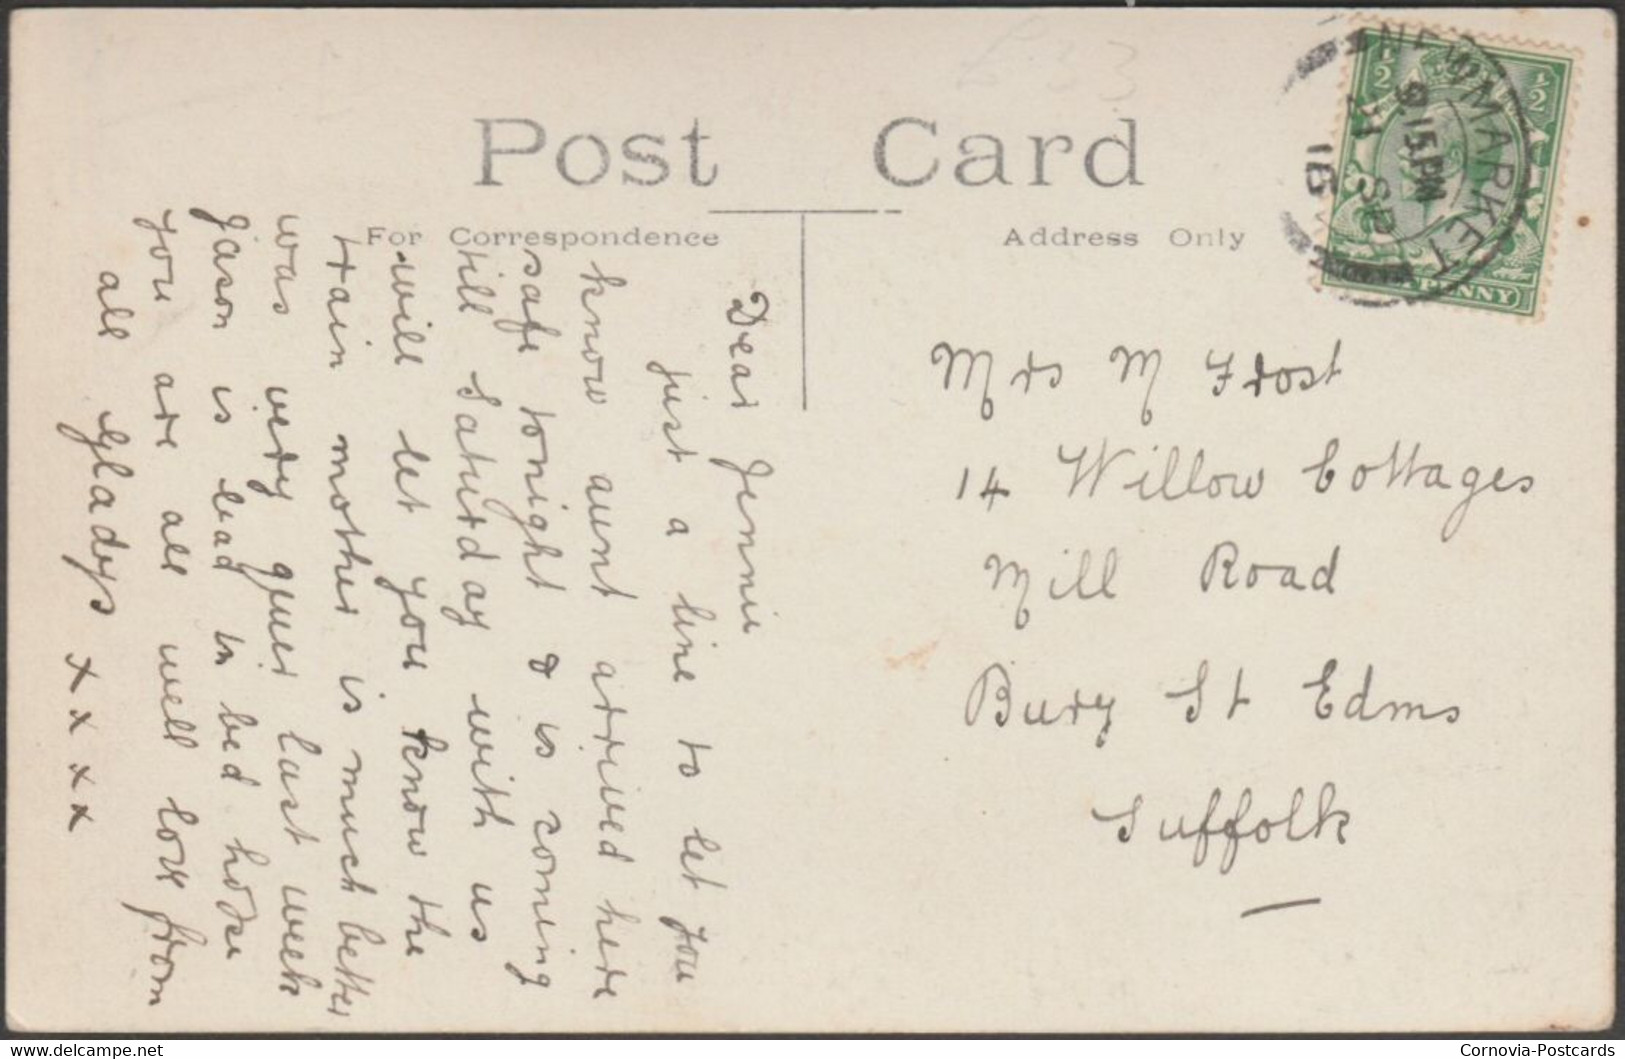 Post Card
For Correspondence
Address Only
NEWMARKET
9.15 PM
SP
16
½ ½
PENNY
Dear Jennie
just a line to let you
know aunt arrived here
safe tonight & is coming
till Saturday with us
will let you know the
train mother is much better
was very quer last week
Jason is in bed
you are all well love from
all Gladys x x x x
Mrs M Frost
14 Willow Cottages
Mill Road
Bury St Edms
Suffolk
Cornovia-Postcards
www.delcampe.net